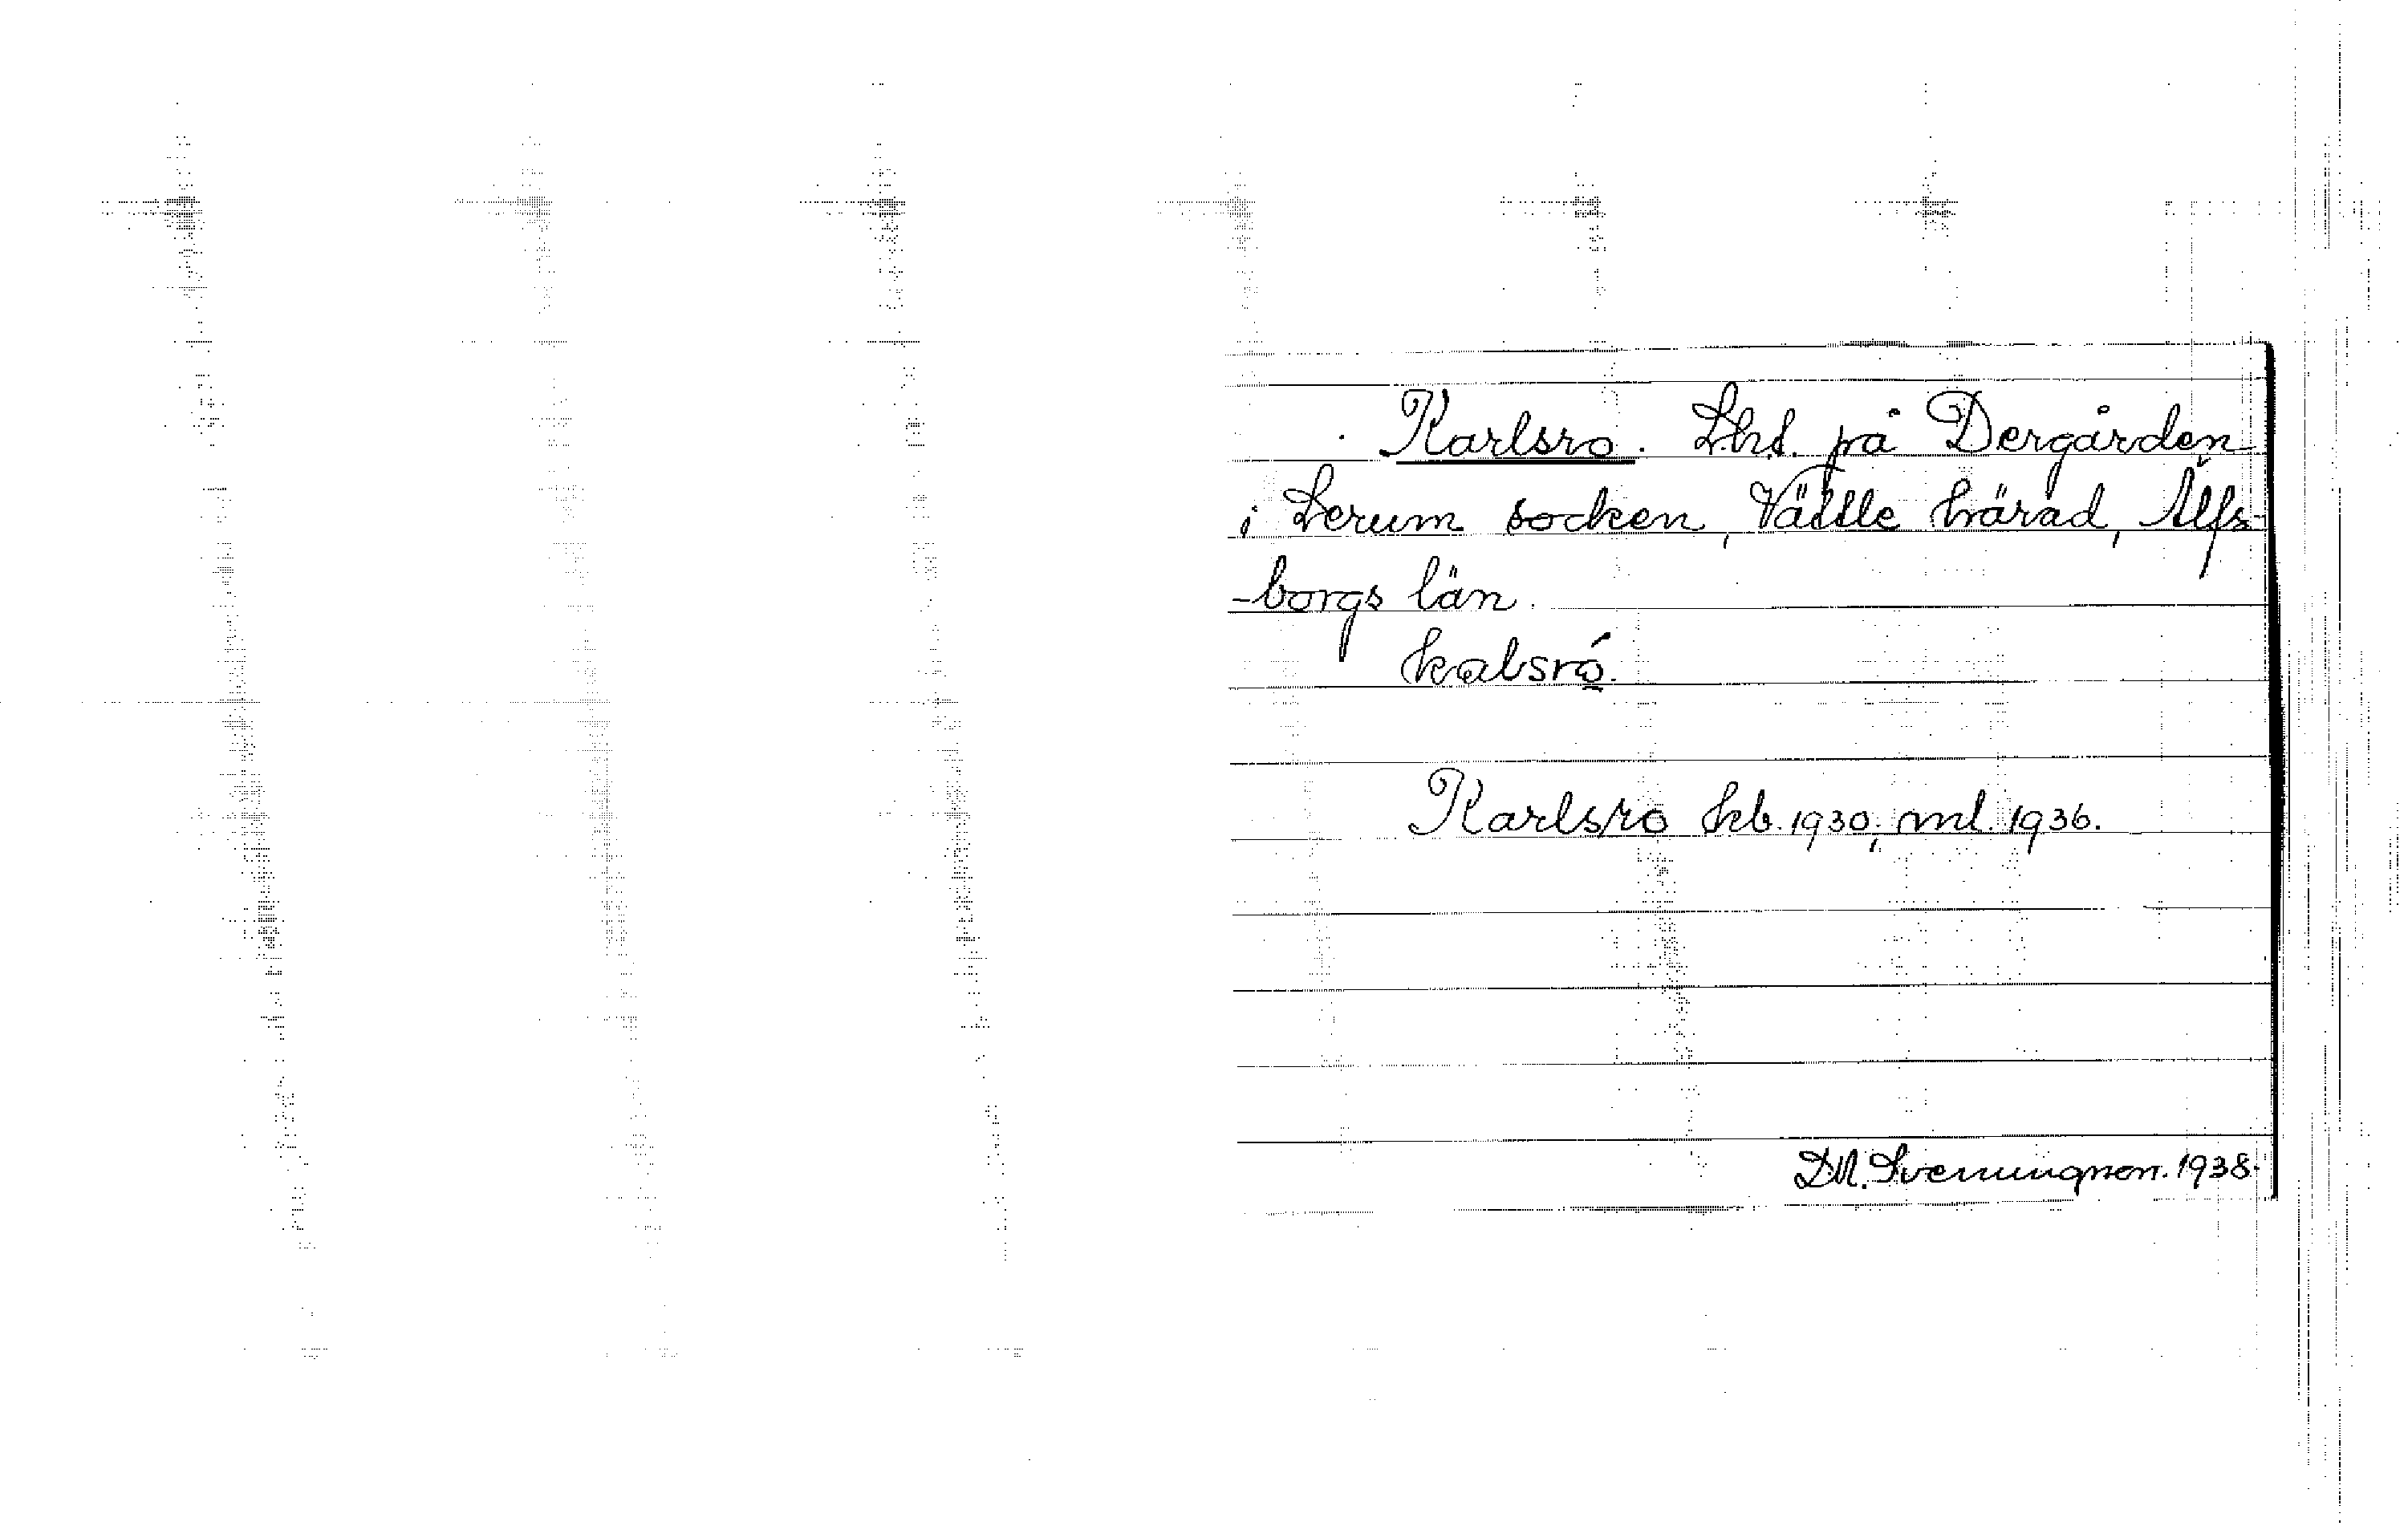 Karlsro. Lht. på Dergården
i Lerum socken, Vättle härad, Älfs-
-borgs län.
kalsró.
Karlsro kb. 1930; ml. 1936.
D.M. Svenungson. 1938.